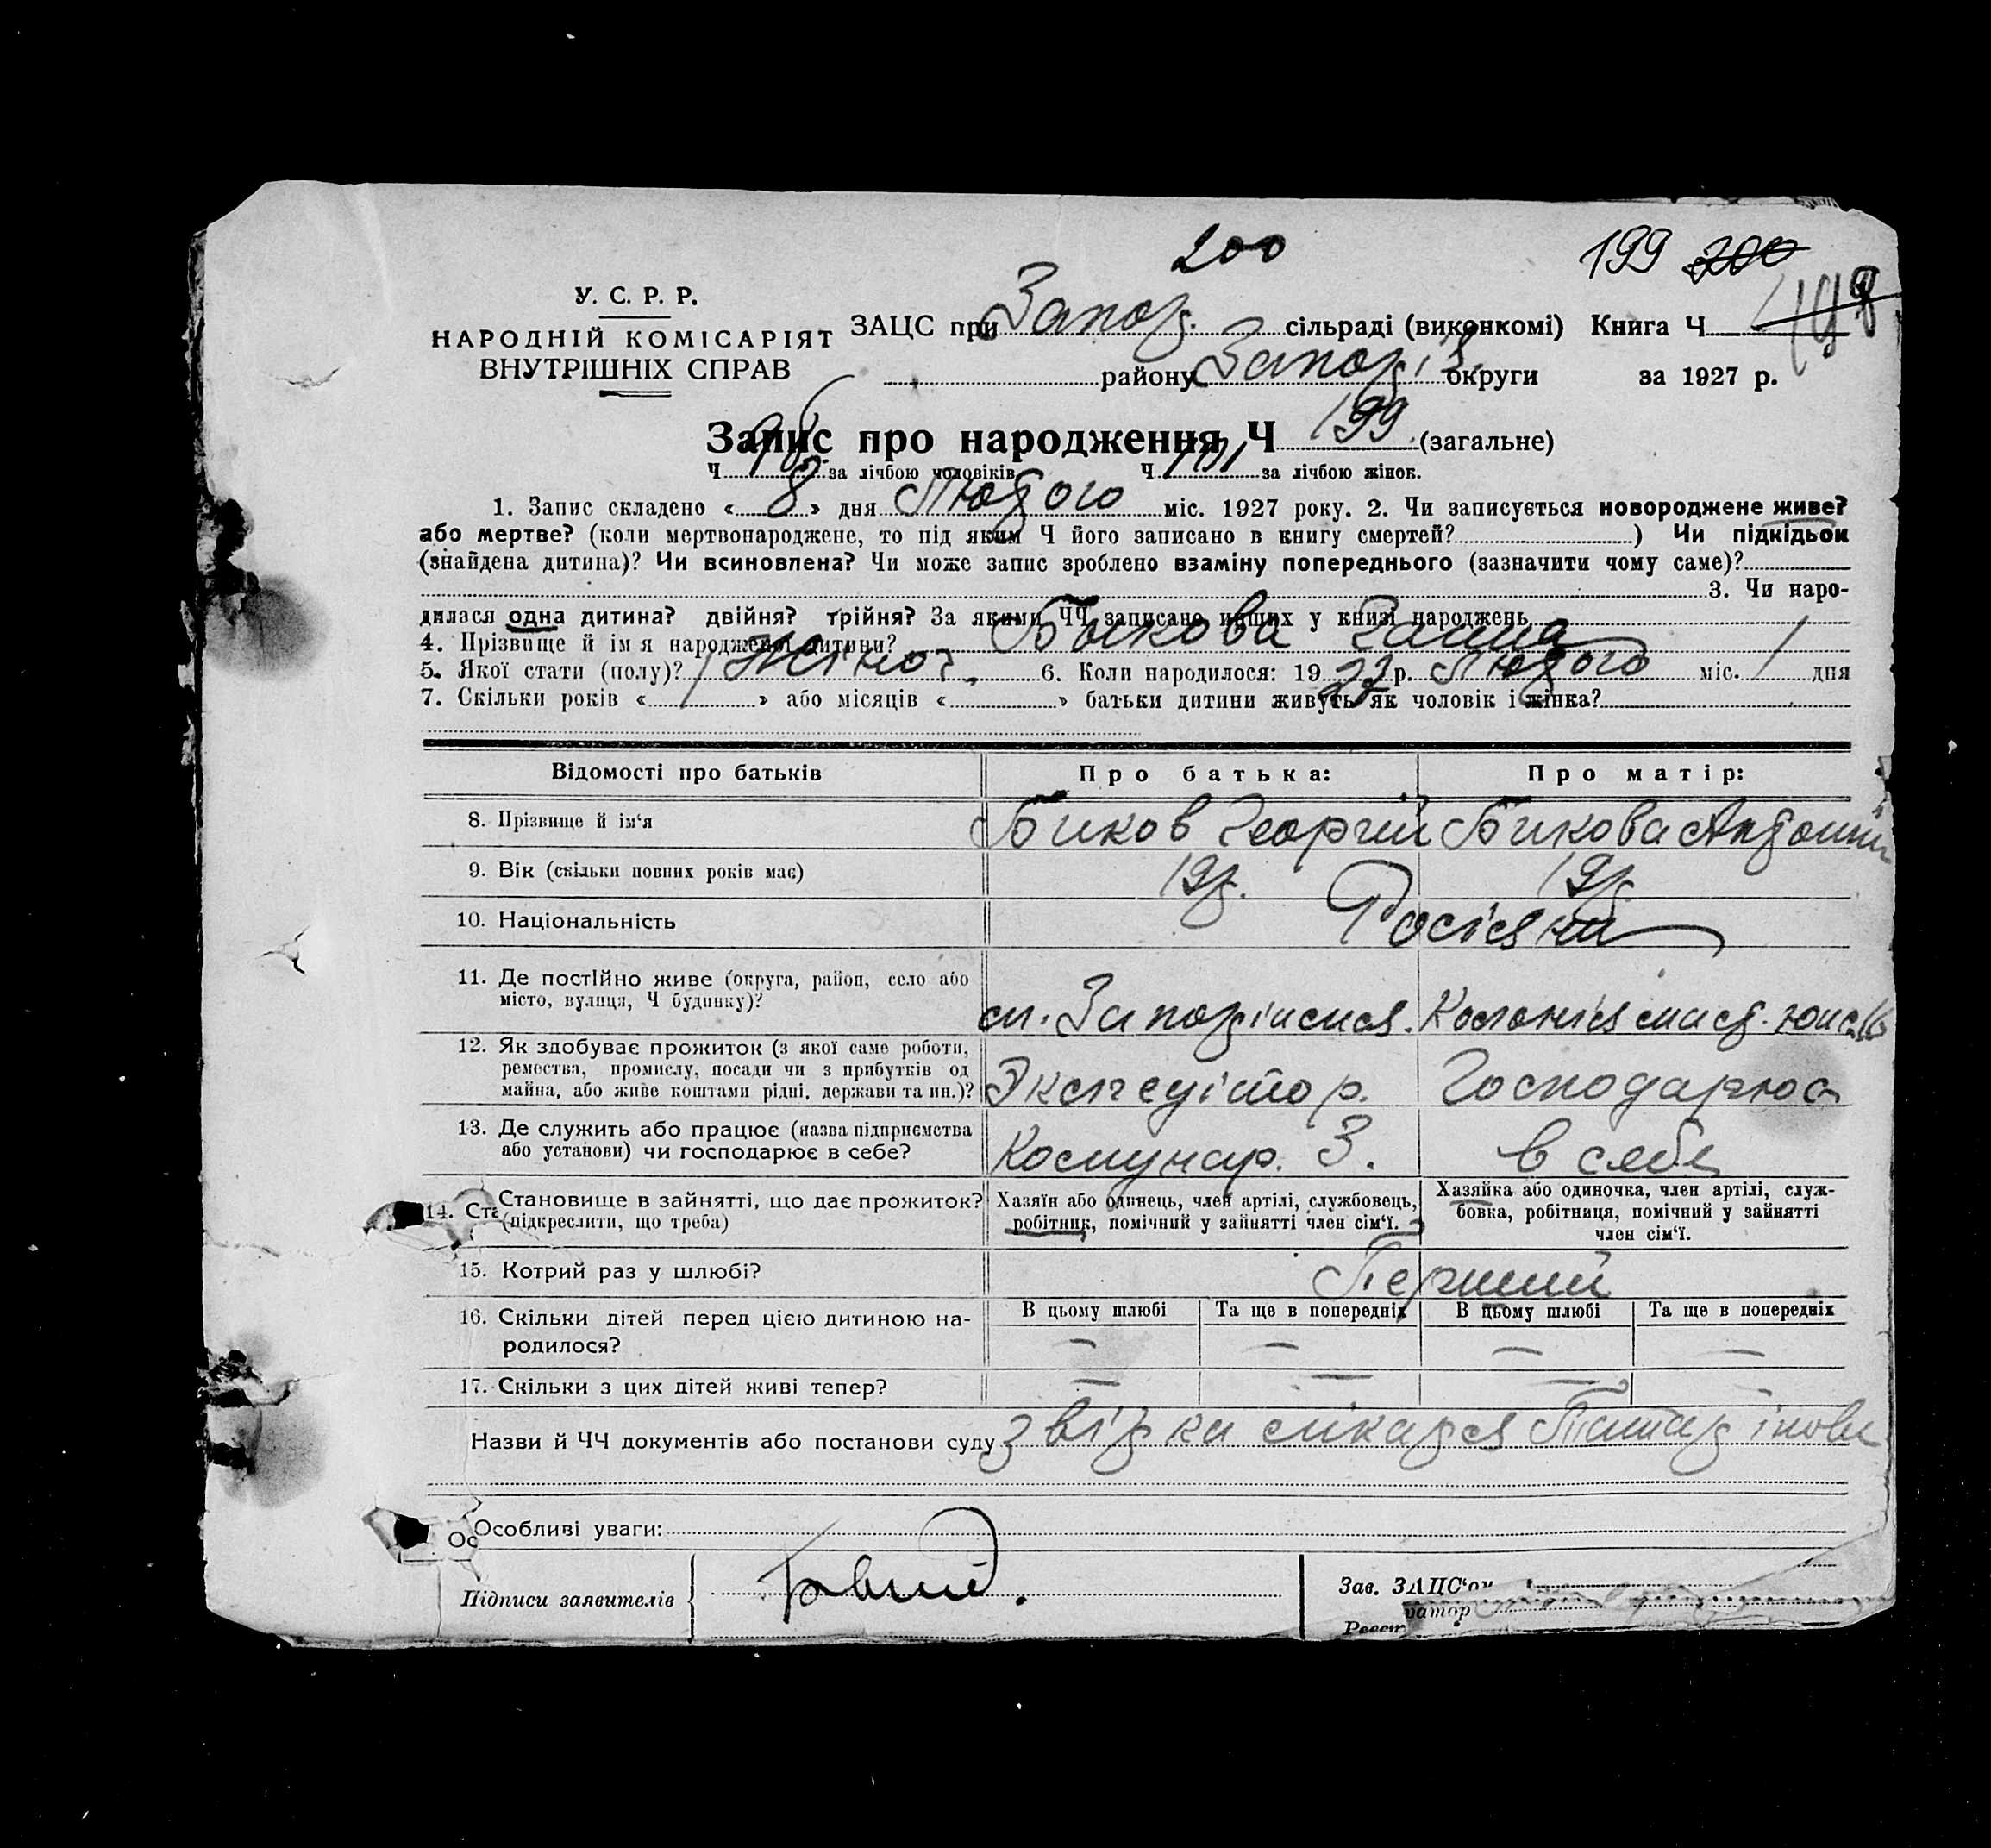 200
199 200
198
У. С. Р. Р.
НАРОДНІЙ КОМІСАРІЯТ
ВНУТРІШНІХ СПРАВ
ЗАЦС при Запор. сільраді (виконкомі) Книга Ч
району Запоріз. округи за 1927 р.
Запис про народження Ч 199 (загальне)
Ч 98 за лічбою чоловіків Ч 101 за лічбою жінок.
1. Запис складено « 8 » дня Лютого міс. 1927 року. 2. Чи записується новороджене живе?
або мертве? (коли мертвонароджене, то під яким Ч його записано в книгу смертей? ) Чи підкідьок
(знайдена дитина)? Чи всиновлена? Чи може запис зроблено взаміну попереднього (зазначити чому саме)?
3. Чи наро-
дилася одна дитина? двійня? трійня? За якими ЧЧ записано инших у книзі народжень
4. Прізвище й ім я народженої дитини? Быкова Ганна
5. Якої стати (полу)? Жіноч. 6. Коли народилося: 19 27 р. Лютого міс. 1 дня
7. Скільки років « 1 » або місяців « » батьки дитини живуть як чоловік і жінка?
Відомості про батьків Про батька: Про матір:
8. Прізвище й ім‘я Биков Георгий Бикова
9. Вік (скільки повних років має) 19р. 19р.
10. Національність Росіяни
11. Де постійно живе (округа, район, село або
місто, вулиця, Ч будинку)? Колонія
12. Як здобуває прожиток (з якої саме роботи,
ремества, промислу, посади чи з прибутків од
майна, або живе коштами рідні, держави та ин.)? Экспедітор. Господарює
13. Де служить або працює (назва підприємства
або установи) чи господарює в себе? Комунар. З. в себе
14. Становище в зайнятті, що дає прожиток?
(підкреслити, що треба)
Хазяїн або одинець, член артілі, службовець,
робітник, помічний у зайнятті член сім‘ї.
Хазяйка або одиночка, член артілі, служ-
бовка, робітниця, помічний у зайнятті
член сім‘ї.
15. Котрий раз у шлюбі? Перший
16. Скільки дітей перед цією дитиною на-
родилося?
В цьому шлюбі Та ще в попередніх В цьому шлюбі Та ще в попередніх
— — — —
17. Скільки з цих дітей живі тепер? — — — —
Назви й ЧЧ документів або постанови суду звідка лікаря
Особливі уваги:
Підписи заявителів
Зав. ЗАЦС‘ом